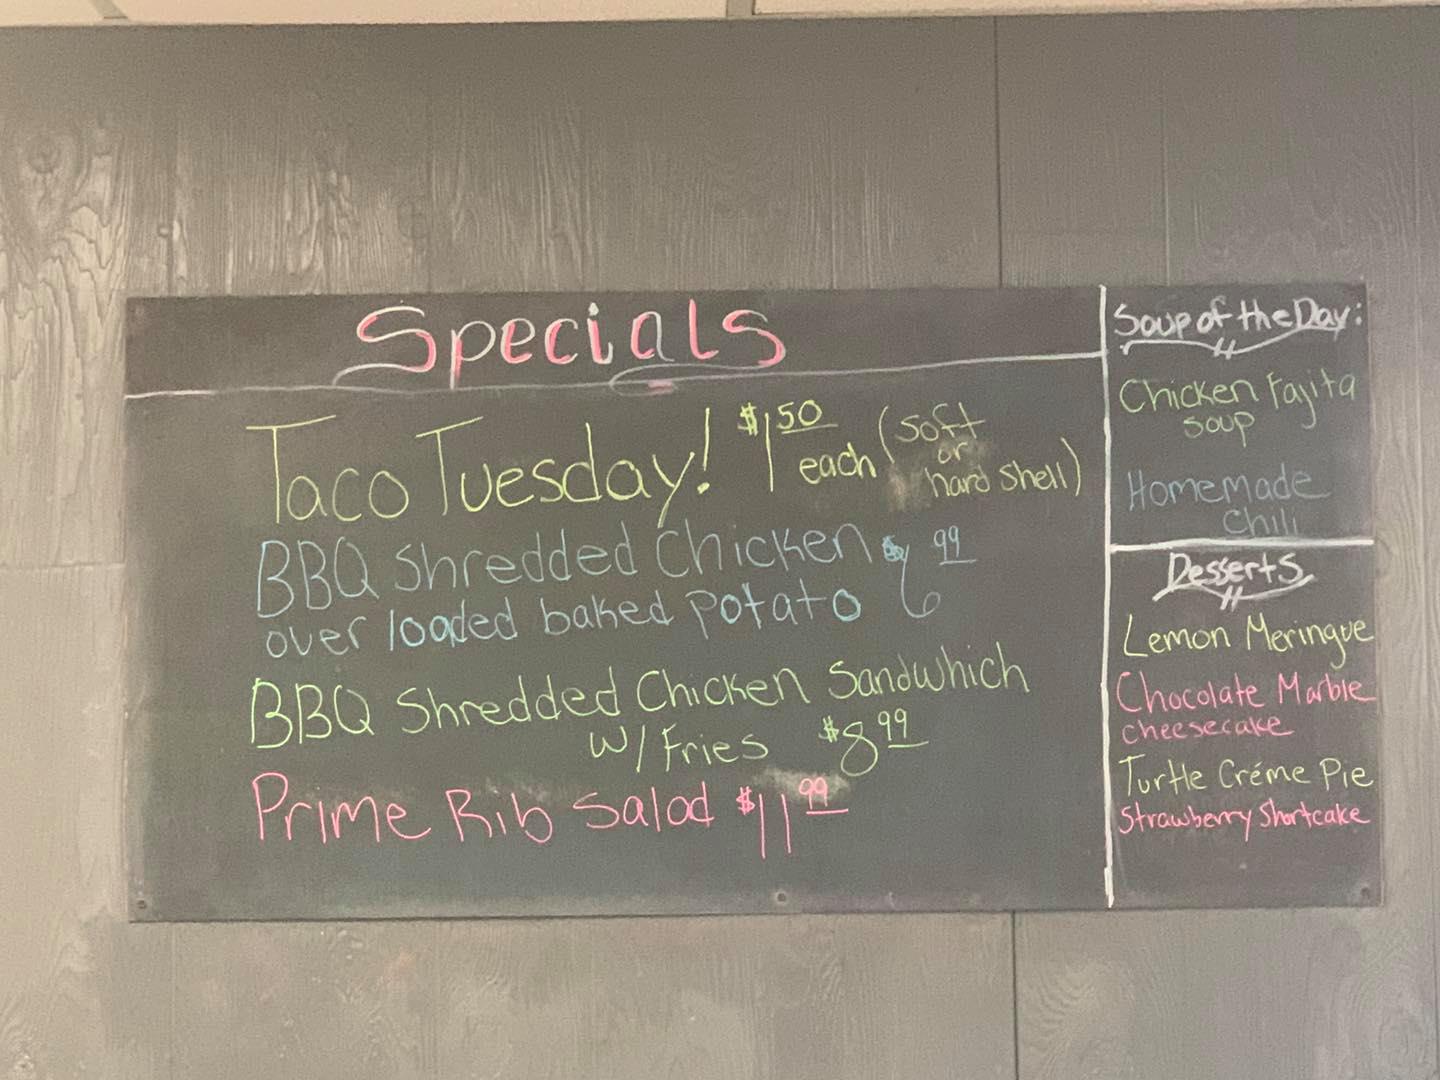 Specials
Taco Tuesday! $1.50 each (soft or hard shell)
BBQ Shredded Chicken $6.99
over loaded baked potato
BBQ Shredded Chicken Sandwhich
w/ Fries $8.99
Prime Rib Salad $11.99
Soup of the Day:
Chicken Fajita
soup
Homemade
Chili
Desserts
Lemon Meringue
Chocolate Marble
cheesecake
Turtle Créme Pie
Strawberry Shortcake